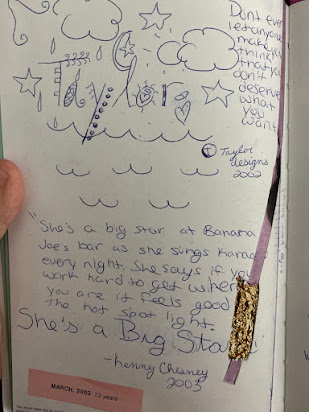 Dont ever
let anyone
make you
think
that you
don't
deserve
what
you
want
Taylor
T Taylor
designs
2002
"She's a big star at Banana
Joe's bar as she sings karao
every night. She says if you
work hard to get where
you are it feels good
the hot spot light.
She's a Big Star"
-Kenny Chesney
2003
MARCH, 2003 13 years